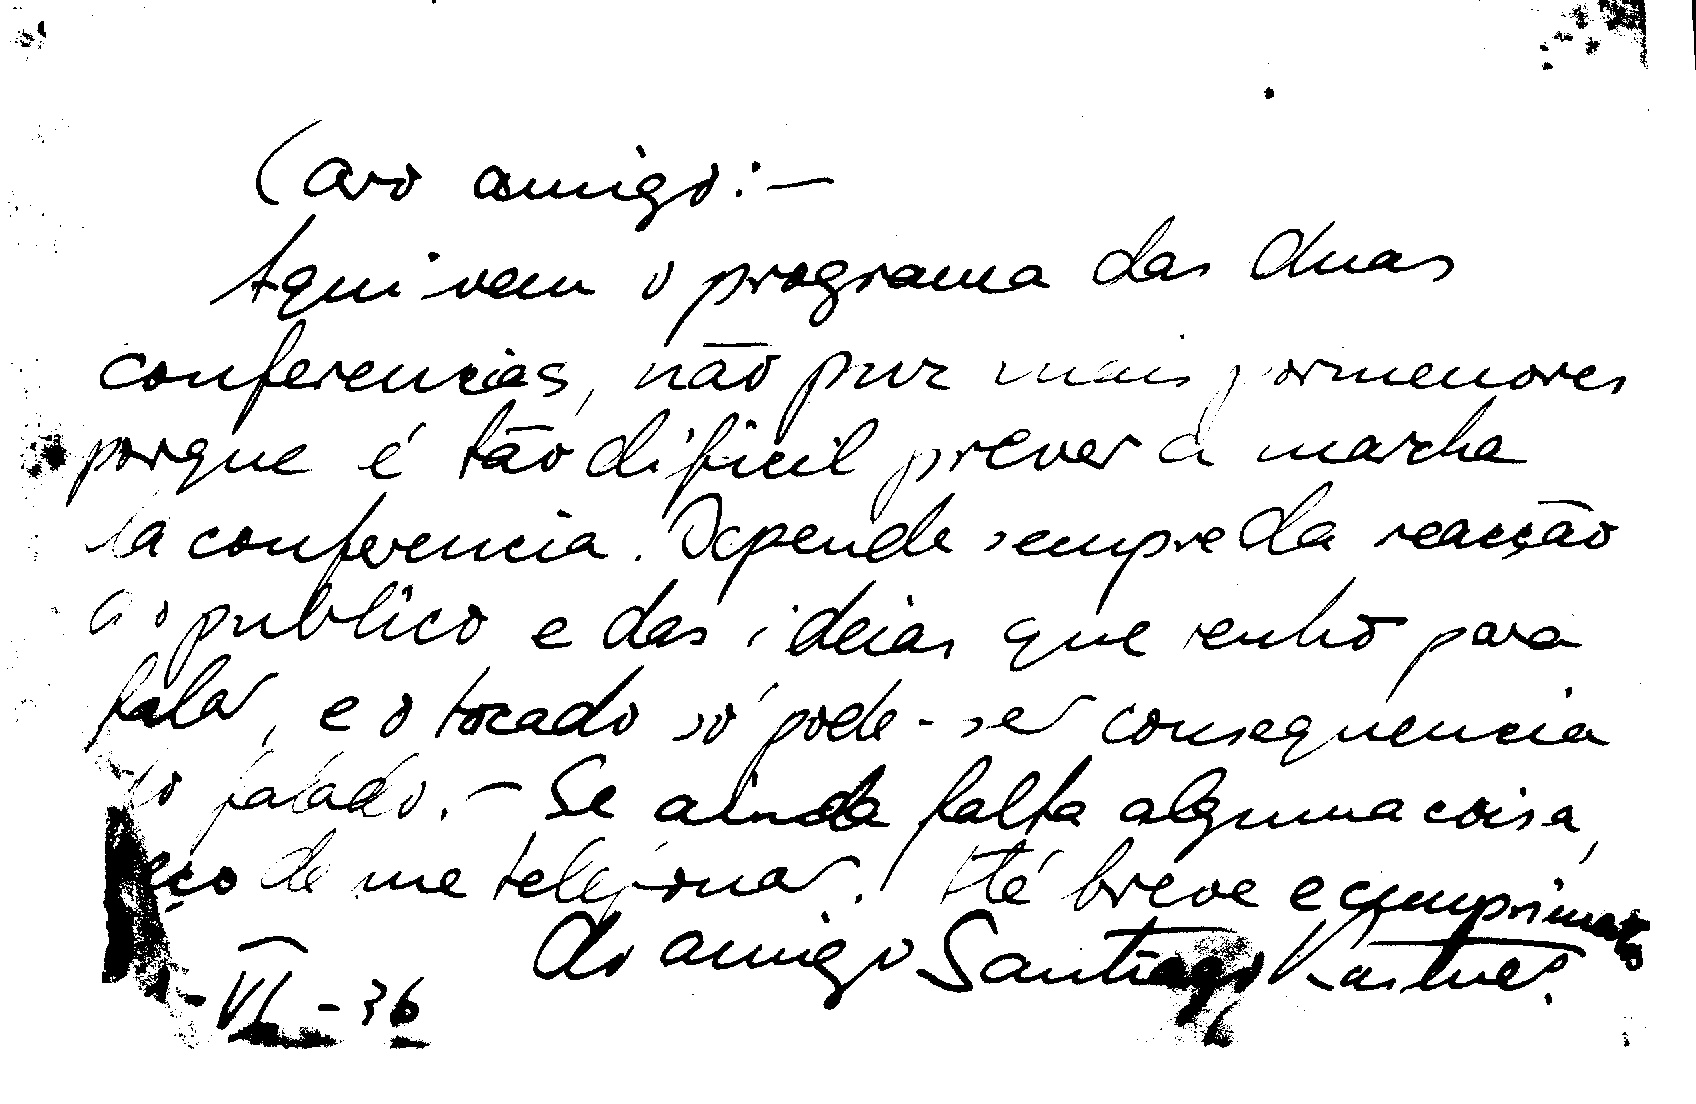 Caro amigo:—
Aqui vem o programa das duas
conferencias, não puz mais pormenores
porque é tão dificil prever a marcha
da conferencia. Depende sempre da reacção
do publico e das ideias que tenho para
falar, e o tocado só pode-ser consequencia
do falado.— Se ainda falta alguma coisa,
peço de me telefonar. Até breve e cumprimentos
do amigo Santiago Kastner.
-VI-36